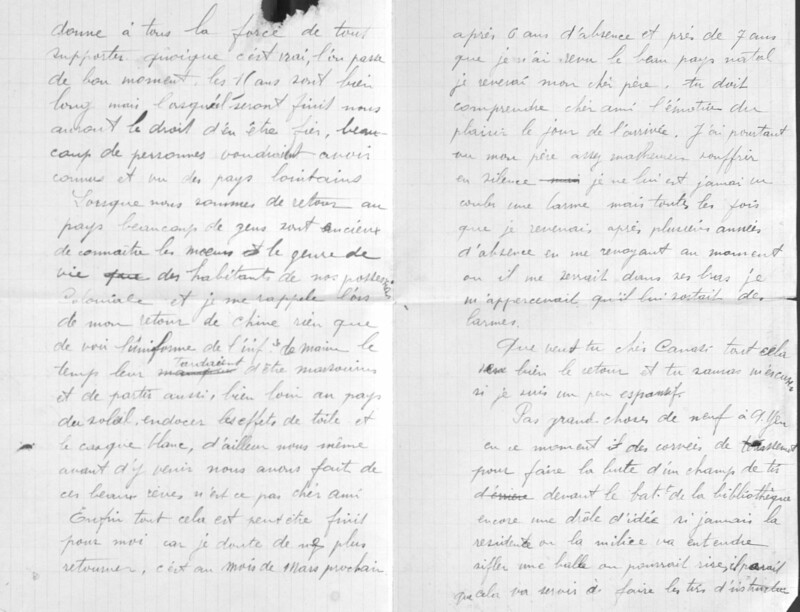 donne à tous la force de tout
supporter quoique c'est vrai, l'on passe
de bon moment. les ans sont bien
long mais lorsqu'il seront finit nous
auront le droit d'en être fier, beau-
coup de personnes voudraient avoir
connus et vu des pays lointains
Lorsque nous sommes de retour au
pays beaucoup de gens sont ancieux
de connaître les moeurs et le genre de
vie des habitants de nos possessions
Coloniale et je me rappele lors
de mon retour de Chine rien que
de voir l'uniforme de l'inf. de marine le
temps leur tardaient d'être marsouins
et de partir aussi, bien loin au pays
du soleil, endocer les effets de toile et
le casque blanc, d'ailleur nous même
avant d'y venir nous avons fait de
ces beaux rêves n'est ce pas cher ami
Enfin tout cela est peut être finit
pour moi car je doute de ne plus
retourner, c'est au mois de Mars prochain
après 6 ans d'absence et près de 7 ans
que je n'ai revu le beau pays natal
je reverai mon cher père. tu doit
comprendre cher ami l'émotion du
plaisir le jour de l'arrivée. J'ai pourtant
vu mon père assez malheureux souffrir
en silence je ne lui est jamais vu
couler une larme mais toutes les fois
que je revenais après plusieurs années
d'absence en me revoyant au moment
ou il me serrait dans ses bras je
m'appercevait qu'il lui sortait des
larmes.
Que veux tu cher Canasi tout cela
bien le retour et tu sauras m'excuser
si je suis un peu expansif.
Pas grand choses de neuf à
en ce moment des corvées de
pour faire la butte d'un champs de tir
devant le bat.t de la bibliothèque
encore une drôle d'idée si jamais la
residente ou la milice va entendre
sifler une balle on pourrait rire, il parait
que cela va servir à faire les tirs d'instruction